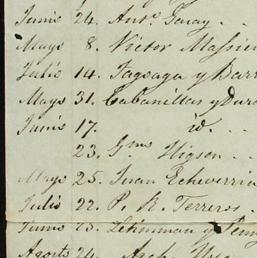 Junio 24. Anto. Garay.
Mayo 8. Victor Massieu
Julio 14. Fagoaga y Barr
Mayo 31. Cabanillas y Dura
Junio 17. id.
23. Gmo Higson.
Mayo 25. Juan Echeverria
Julio 22. P. R. Terreros.
Junio 23. Lehmman y
Agosto 24.